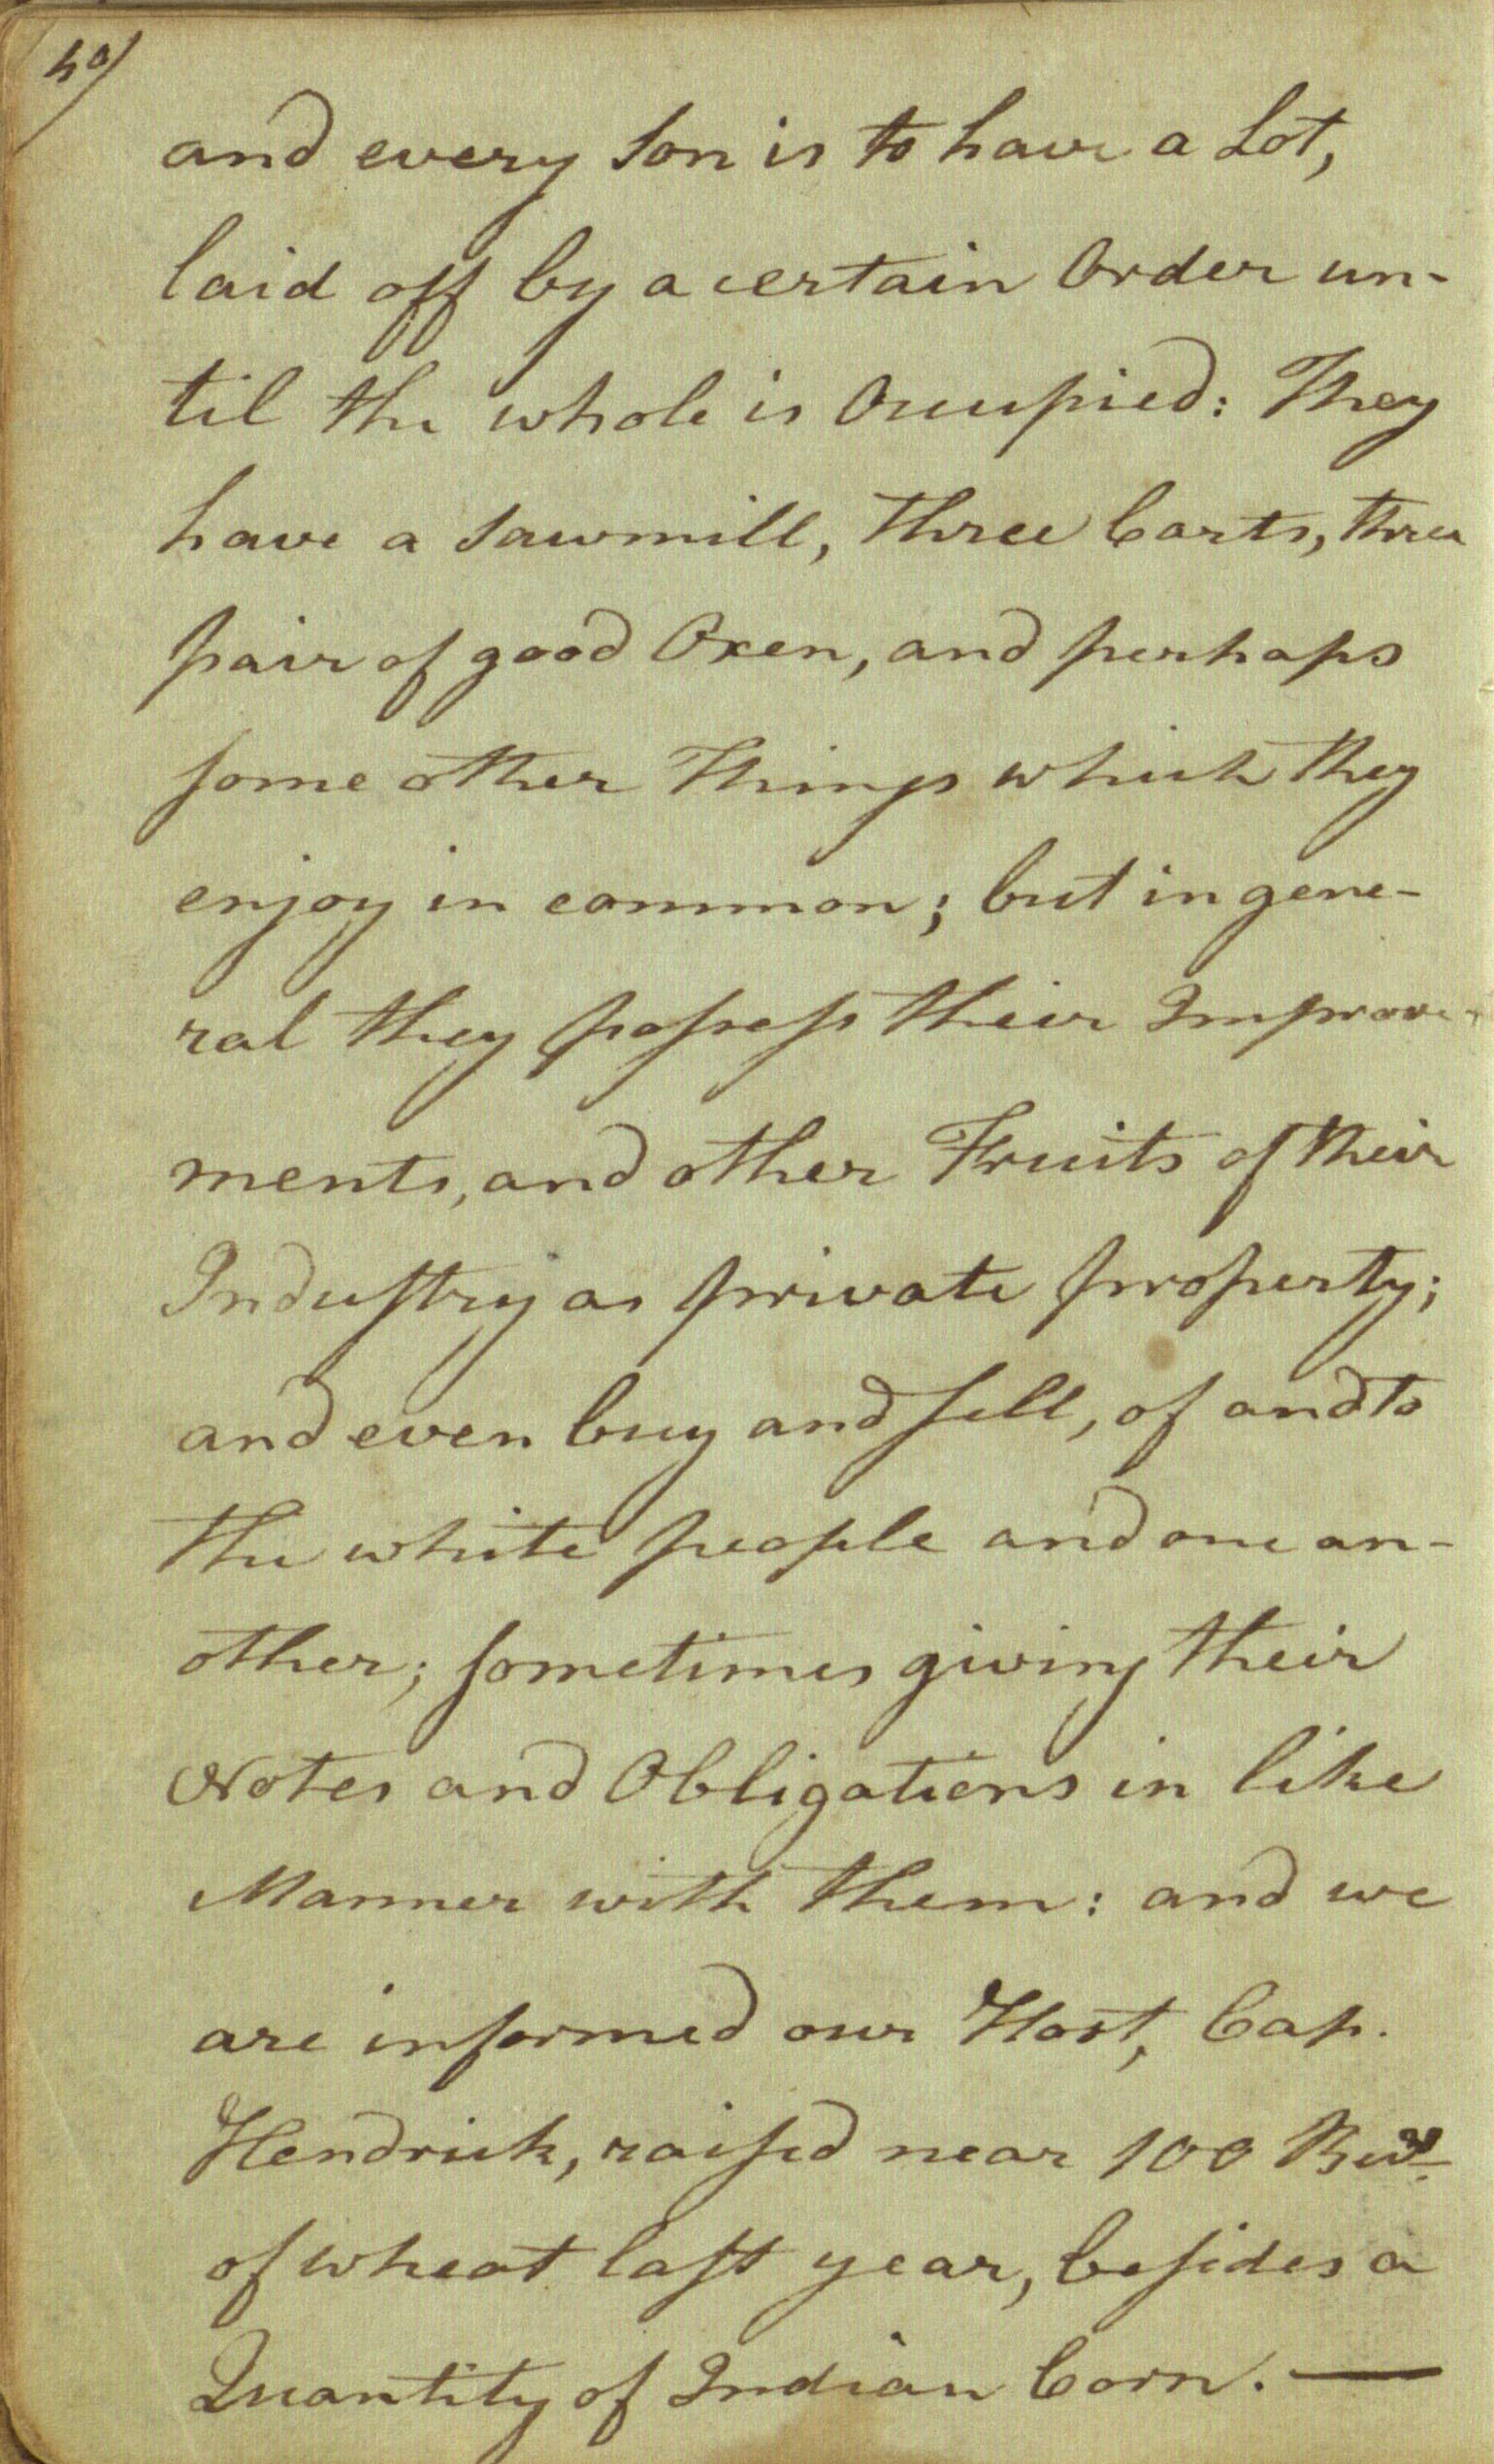 50/
and every Son is to have a Lot,
laid off by a certain Order un-
til the whole is Occupied: They
have a Sawmill, three Carts, three
pair of good Oxen, and perhaps
some other Things which they
enjoy in common; but in gene-
ral they possess their Improve-
ments, and other Fruits of their
Industry as private property;
and even buy and sell, of and to
the white people and one an-
other; sometimes giving their
Notes and Obligations in like
Manner with them: and we
are informed our Host, Cap.
Hendrick, raised near 100
of wheat last year, besides a
Quantity of Indian Corn. —